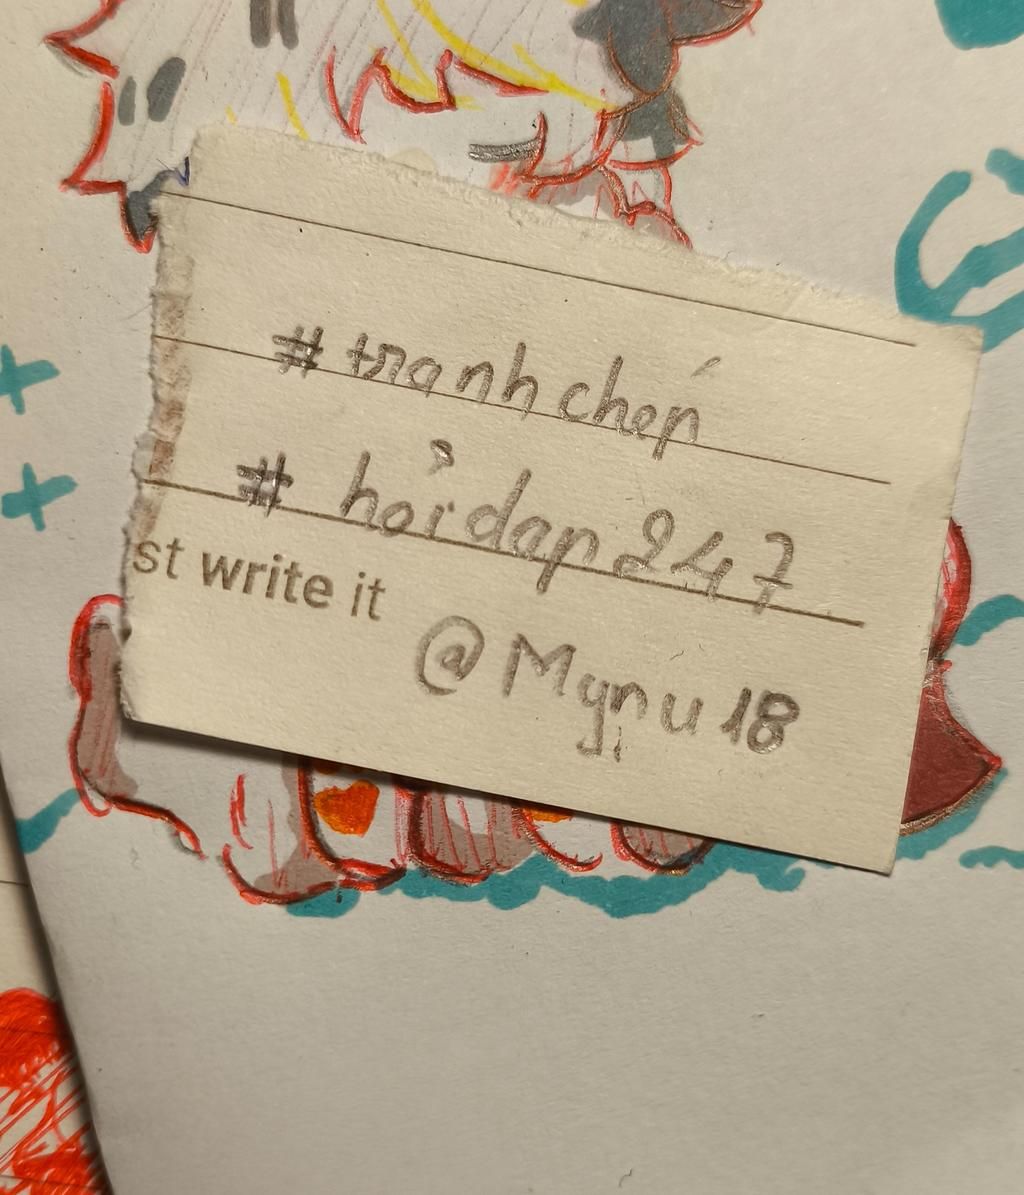 # tranh chép
# hỏi dap 247
st write it
@Mynu18